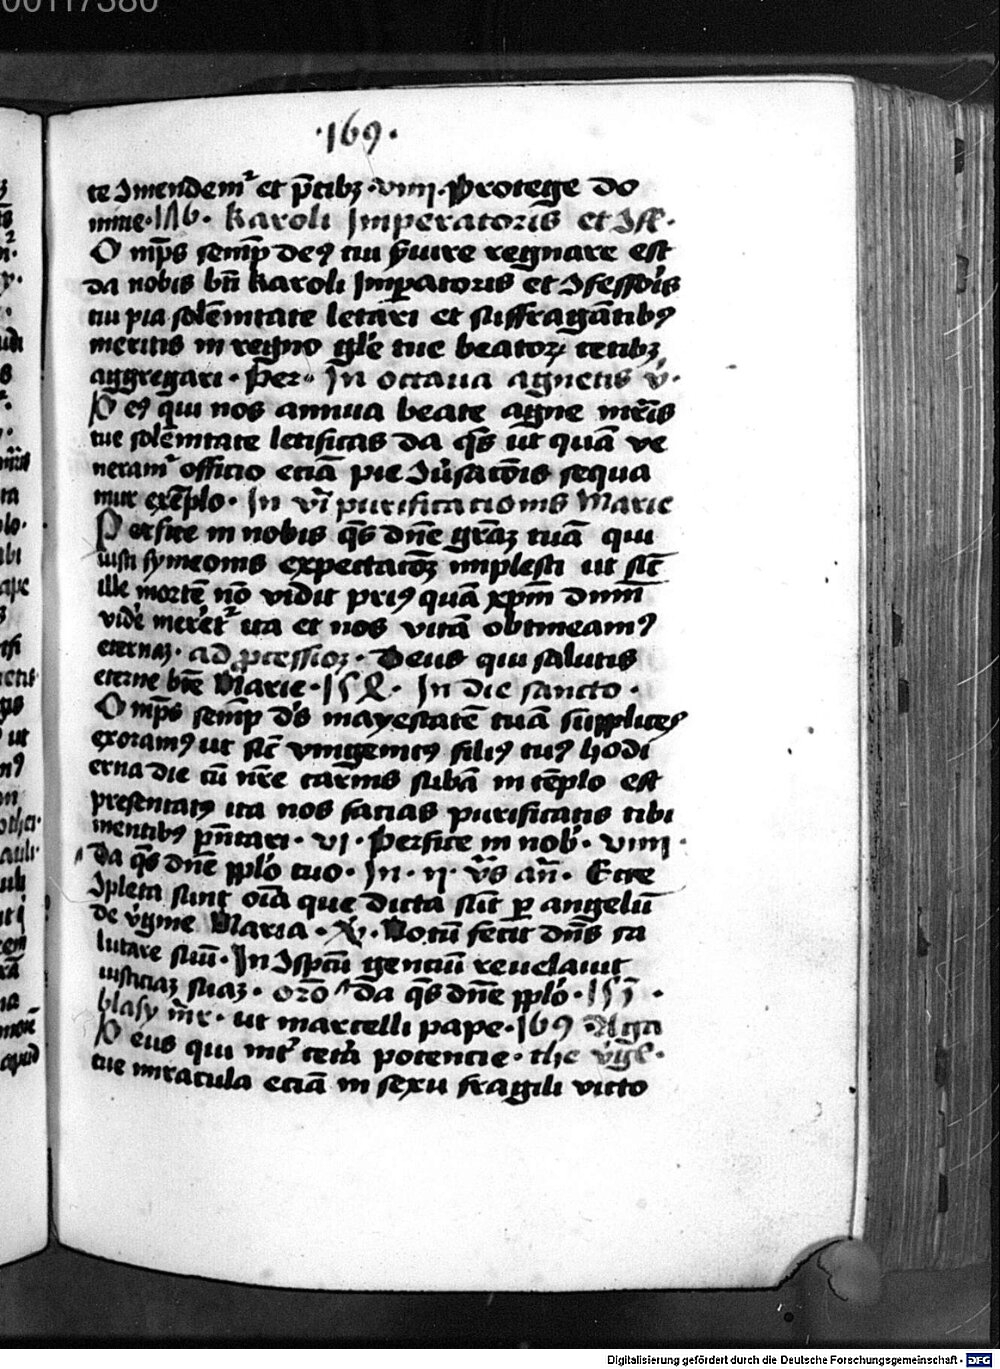 00117380
·169·
te Jmendem² et p̄cibꝫ · viiij · Protege do
mine · 186 · Karoli Jmperatoris et Ꝯf̄f ·
O mp̄s semp̄ deꝰ cui s̄uire regnare est
da nobis bn̄ Karoli Jmꝑatoris et Ꝯfessōis
tui pia solēnitate letari et suffragātibꝰ
meritis in regno gl̄e tue beatoꝝ cetibꝫ
aggregari · Per · Jn octaua agnetis v̓ ·
D eꝰ qui nos annua beate agne mr̄is
tue solēnitate letificas da q̄s ut quā ve
neram² officio eciā pie Ꝯu̓sacōis sequa
mur exēplo · Jn vi̓ purificationis Marie
P erfice in nobis q̄s dn̄e grāꝫ tuā qui
iusti symeonis expectacōꝫ implesti ut sic̄
ille mortē nō vidit priꝰ quā xp̄m dnm̄
vide̓ mere̓t² ita et nos vitā obtineamꝰ
eternaꝫ · ad ꝓcessioꝫ · Deus qui salutis
eterne bt̄e Marie · 158 · Jn die sancto ·
O mp̄s semp̄ ds̄ mayestatē tuā supplices
exoramꝰ ut sic̄ vnigenitꝰ filiꝰ tuꝰ hodi
erna die cū nr̄e carnis subā in tēplo est
presentatꝰ ita nos facias purificatis tibi
mentibꝰ pn̄tari · vi · Perfice in nob̓ · viiij ·
Da q̄s dn̄e ppl̓o tuo · Jn · ij · v̄s añ · Ecce
Ꝯpleta sunt oīa que dicta sūt ꝑ angelū
de v̓gine Maria · V̓ · Notū fecit dn̄s sa
lutare suū · Jn Ꝯspcū genciū reuelauit
iusticiaꝫ suaꝫ · orō Da q̄s dn̄e ppl̓o · 151 ·
blasy mr̄ · ut marcelli pape · 169 · Aga
D eus qui int̓ cet̓a potencie · the v̓gī ·
tue miracula eciā in sexu fragili victo
Digitalisierung gefördert durch die Deutsche Forschungsgemeinschaft - DFG